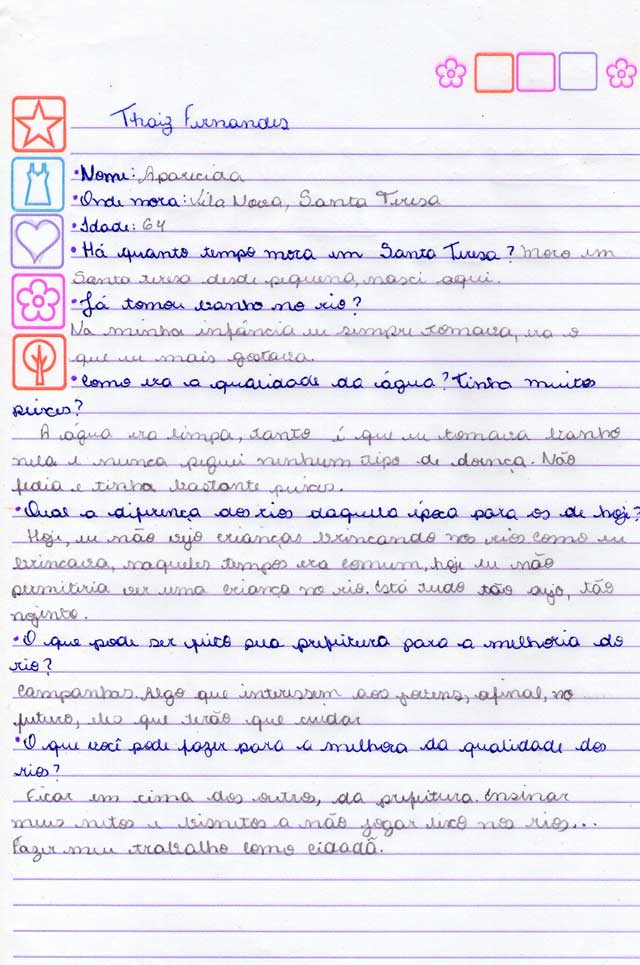 Thaiz Fernandes
•Nome: Aparecida
•Onde mora: Vila Nova, Santa Teresa
•Idade: 64
•Há quanto tempo mora em Santa Teresa? Moro em
Santa teresa desde pequena, nasci aqui.
•Já tomou banho no rio?
Na minha infância eu sempre tomava, era o
que eu mais gostava.
•Como era a qualidade da água? Tinha muitos
peixes?
A água era limpa, tanto é que eu tomava banho
nela e nunca peguei nenhum tipo de doença. Não
fedia e tinha bastante peixes.
•Qual a diferença dos rios daquela época para os de hoje?
Hoje, eu não vejo crianças brincando nos rios como eu
brincava, naqueles tempos era comum, hoje eu não
permitiria ver uma criança no rio. Está tudo tão sujo, tão
nojento.
•O que pode ser feito pela prefeitura para a melhoria do
rio?
Campanhas. Algo que interessem aos jovens, afinal, no
futuro, eles que terão que cuidar
•O que você pode fazer para a melhora da qualidade dos
rios?
Ficar em cima dos outros, da prefeitura. Ensinar
meus netos e bisnetos a não jogar lixo nos rios...
Fazer meu trabalho como cidadã.